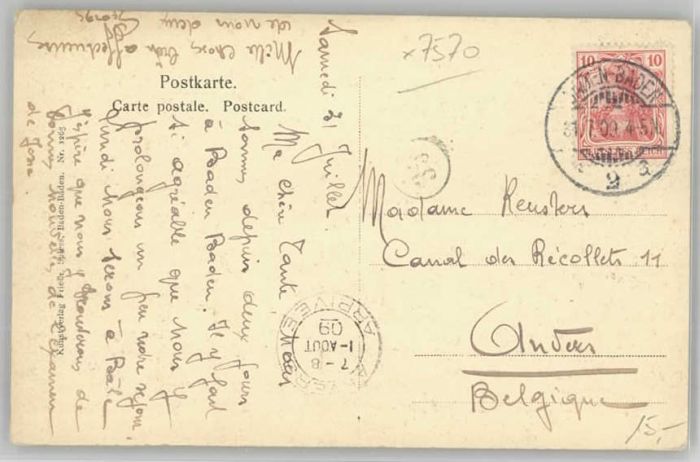 x7570
Postkarte.
Carte postale. Postcard.
10 10
BADEN-BADEN
09. 4-5
2
Madame Reusens
Canal des Récollets 11
Anvers
Belgique
15,-
ARRIVEE
7-8
1-AOUT
09
Samedi 31 Juillet
Ma chère Tante
Nous sommes depuis deux jours
à Baaden Baaden. Il y fait
si agréable que nous y
prolongeons un peu notre séjour.
Lundi nous serons à Bâle
J'espère que nous y trouverons de
bonnes nouvelles de l'examen
de José.
Mille choses bien affectueuses
de nous deux
Nr. 1965